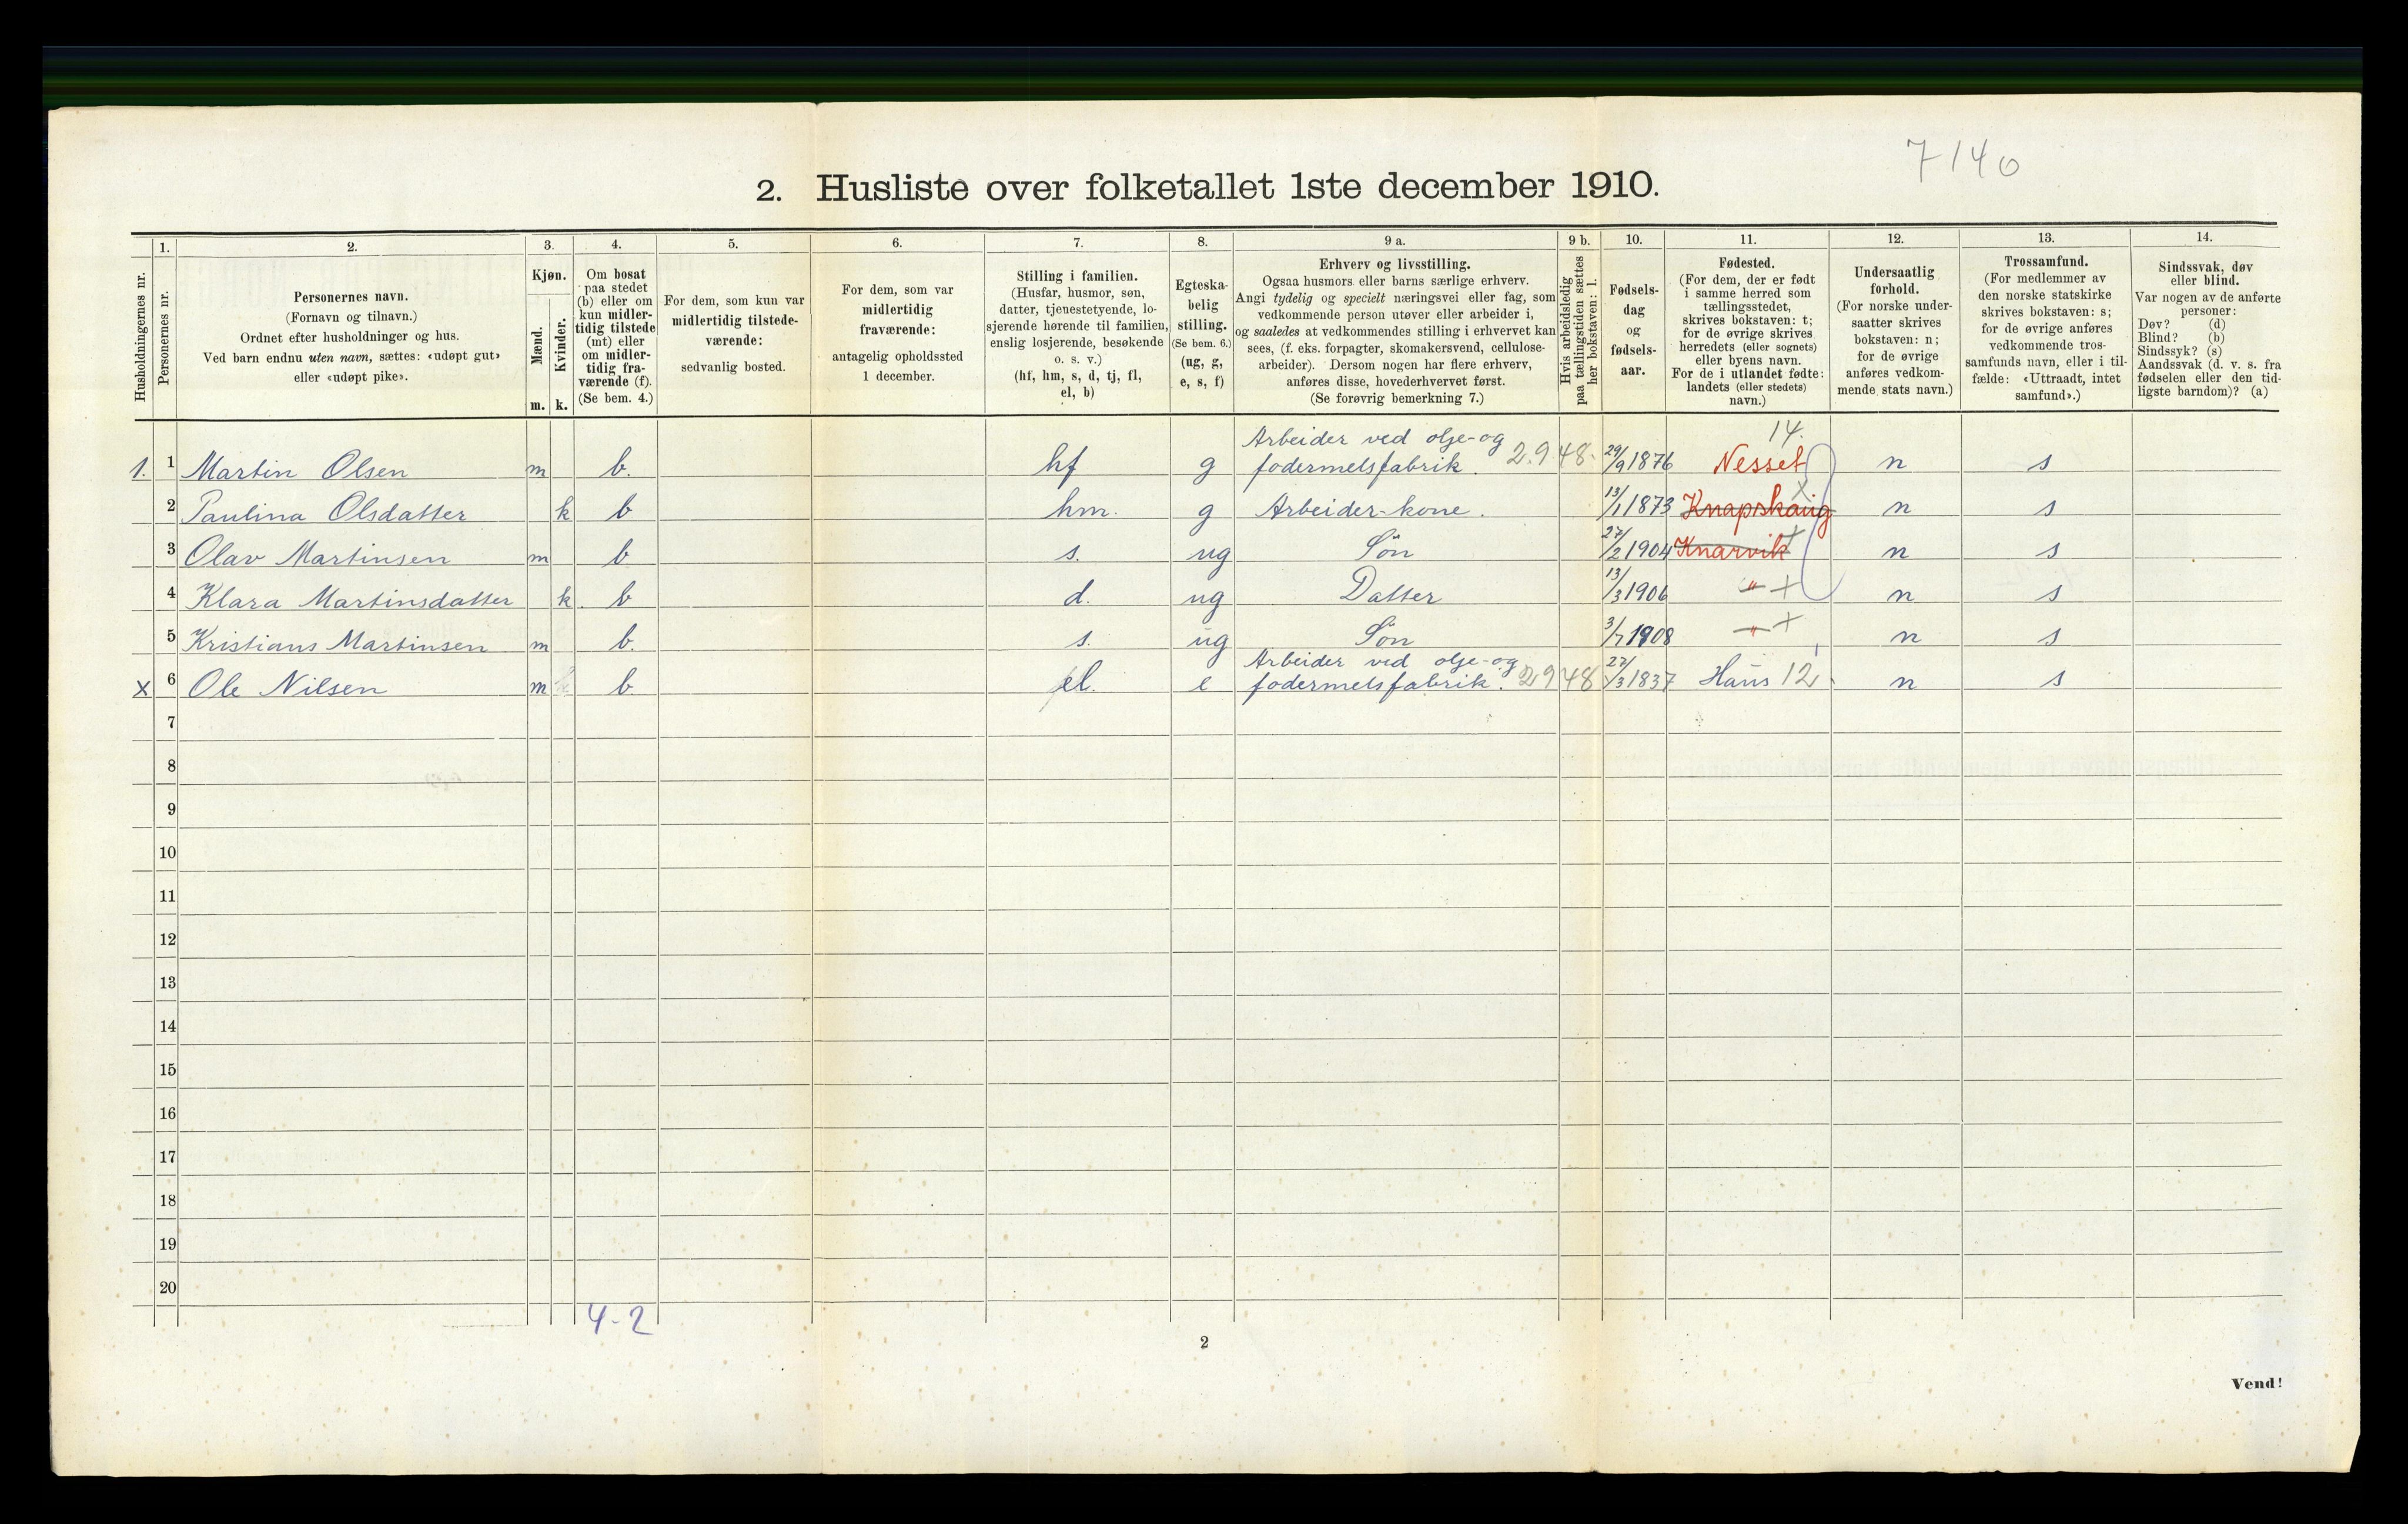 7140
2. Husliste over folketallet 1ste december 1910.
1. 2. 3. 4. 5. 6. 7. 8. 9 a. 9 b. 10. 11. 12. 13. 14.
Husholdningernes nr.
Personernes nr.
Personernes navn.
(Fornavn og tilnavn.)
Ordnet efter husholdninger og hus.
Ved barn endnu uten navn, sættes: «udøpt gut»
eller «udøpt pike».
Kjøn.
Mænd.
Kvinder.
m. k.
Om bosat
paa stedet
(b) eller om
kun midler-
tidig tilstede
(mt) eller
om midler-
tidig fra-
værende (f).
(Se bem. 4.)
For dem, som kun var
midlertidig tilstede-
værende:
sedvanlig bosted.
For dem, som var
midlertidig
fraværende:
antagelig opholdssted
1 december.
Stilling i familien.
(Husfar, husmor, søn,
datter, tjenestetyende, lo-
sjerende hørende til familien,
enslig losjerende, besøkende
o. s. v.)
(hf, hm, s, d, tj, fl,
el, b)
Egteska-
belig
stilling.
(Se bem. 6.)
(ug, g,
e, s, f)
Erhverv og livsstilling.
Ogsaa husmors eller barns særlige erhverv.
Angi tydelig og specielt næringsvei eller fag, som
vedkommende person utøver eller arbeider i,
og saaledes at vedkommendes stilling i erhvervet kan
sees, (f. eks. forpagter, skomakersvend, cellulose-
arbeider). Dersom nogen har flere erhverv,
anføres disse, hovederhvervet først.
(Se forøvrig bemerkning 7.)
Hvis arbeidsledig
paa tællingstiden sættes
her bokstaven: l.
Fødsels-
dag
og
fødsels-
aar.
Fødested.
(For dem, der er født
i samme herred som
tællingsstedet,
skrives bokstaven: t;
for de øvrige skrives
herredets (eller sognets)
eller byens navn.
For de i utlandet fødte:
landets (eller stedets)
navn.)
Undersaatlig
forhold.
(For norske under-
saatter skrives
bokstaven: n;
for de øvrige
anføres vedkom-
mende stats navn.)
Trossamfund.
(For medlemmer av
den norske statskirke
skrives bokstaven: s;
for de øvrige anføres
vedkommende tros-
samfunds navn, eller i til-
fælde: «Uttraadt, intet
samfund».)
Sindssvak, døv
eller blind.
Var nogen av de anførte
personer:
Døv? (d)
Blind? (b)
Sindssyk? (s)
Aandssvak (d. v. s. fra
fødselen eller den tid-
ligste barndom)? (a)
Arbeider ved olje- og 14.
1. 1 Martin Olsen m b. hf g fodermelsfabrik. 2.948. 29/9 1876 Nesset n s
2 Paulina Olsdatter k b hm. g Arbeider-kone. 13/1 1873 Knapskaug x n s
3 Olav Martinsen m b s. ug Søn 27/2 1904 Knarvik + n s
4 Klara Martinsdatter k b d. ug Datter 13/3 1906 " + n s
5 Kristians Martinsen m b. s. ug Søn 3/7 1908 " + n s
Arbeider ved olje- og
x 6 Ole Nilsen m b el. e fodermelsfabrik. 2948 27/3 1837 Haus 12 n s
7
8
9
10
11
12
13
14
15
16
17
18
19
20
4-2
2
Vend!